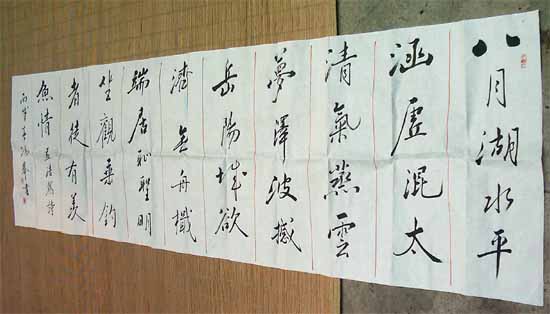 八月湖水平
涵虛混太
清氣蒸雲
夢澤波撼
岳陽城欲
濟無舟檝
端居恥聖明
坐觀垂釣
者徒有羡
魚情 孟浩然詩
書